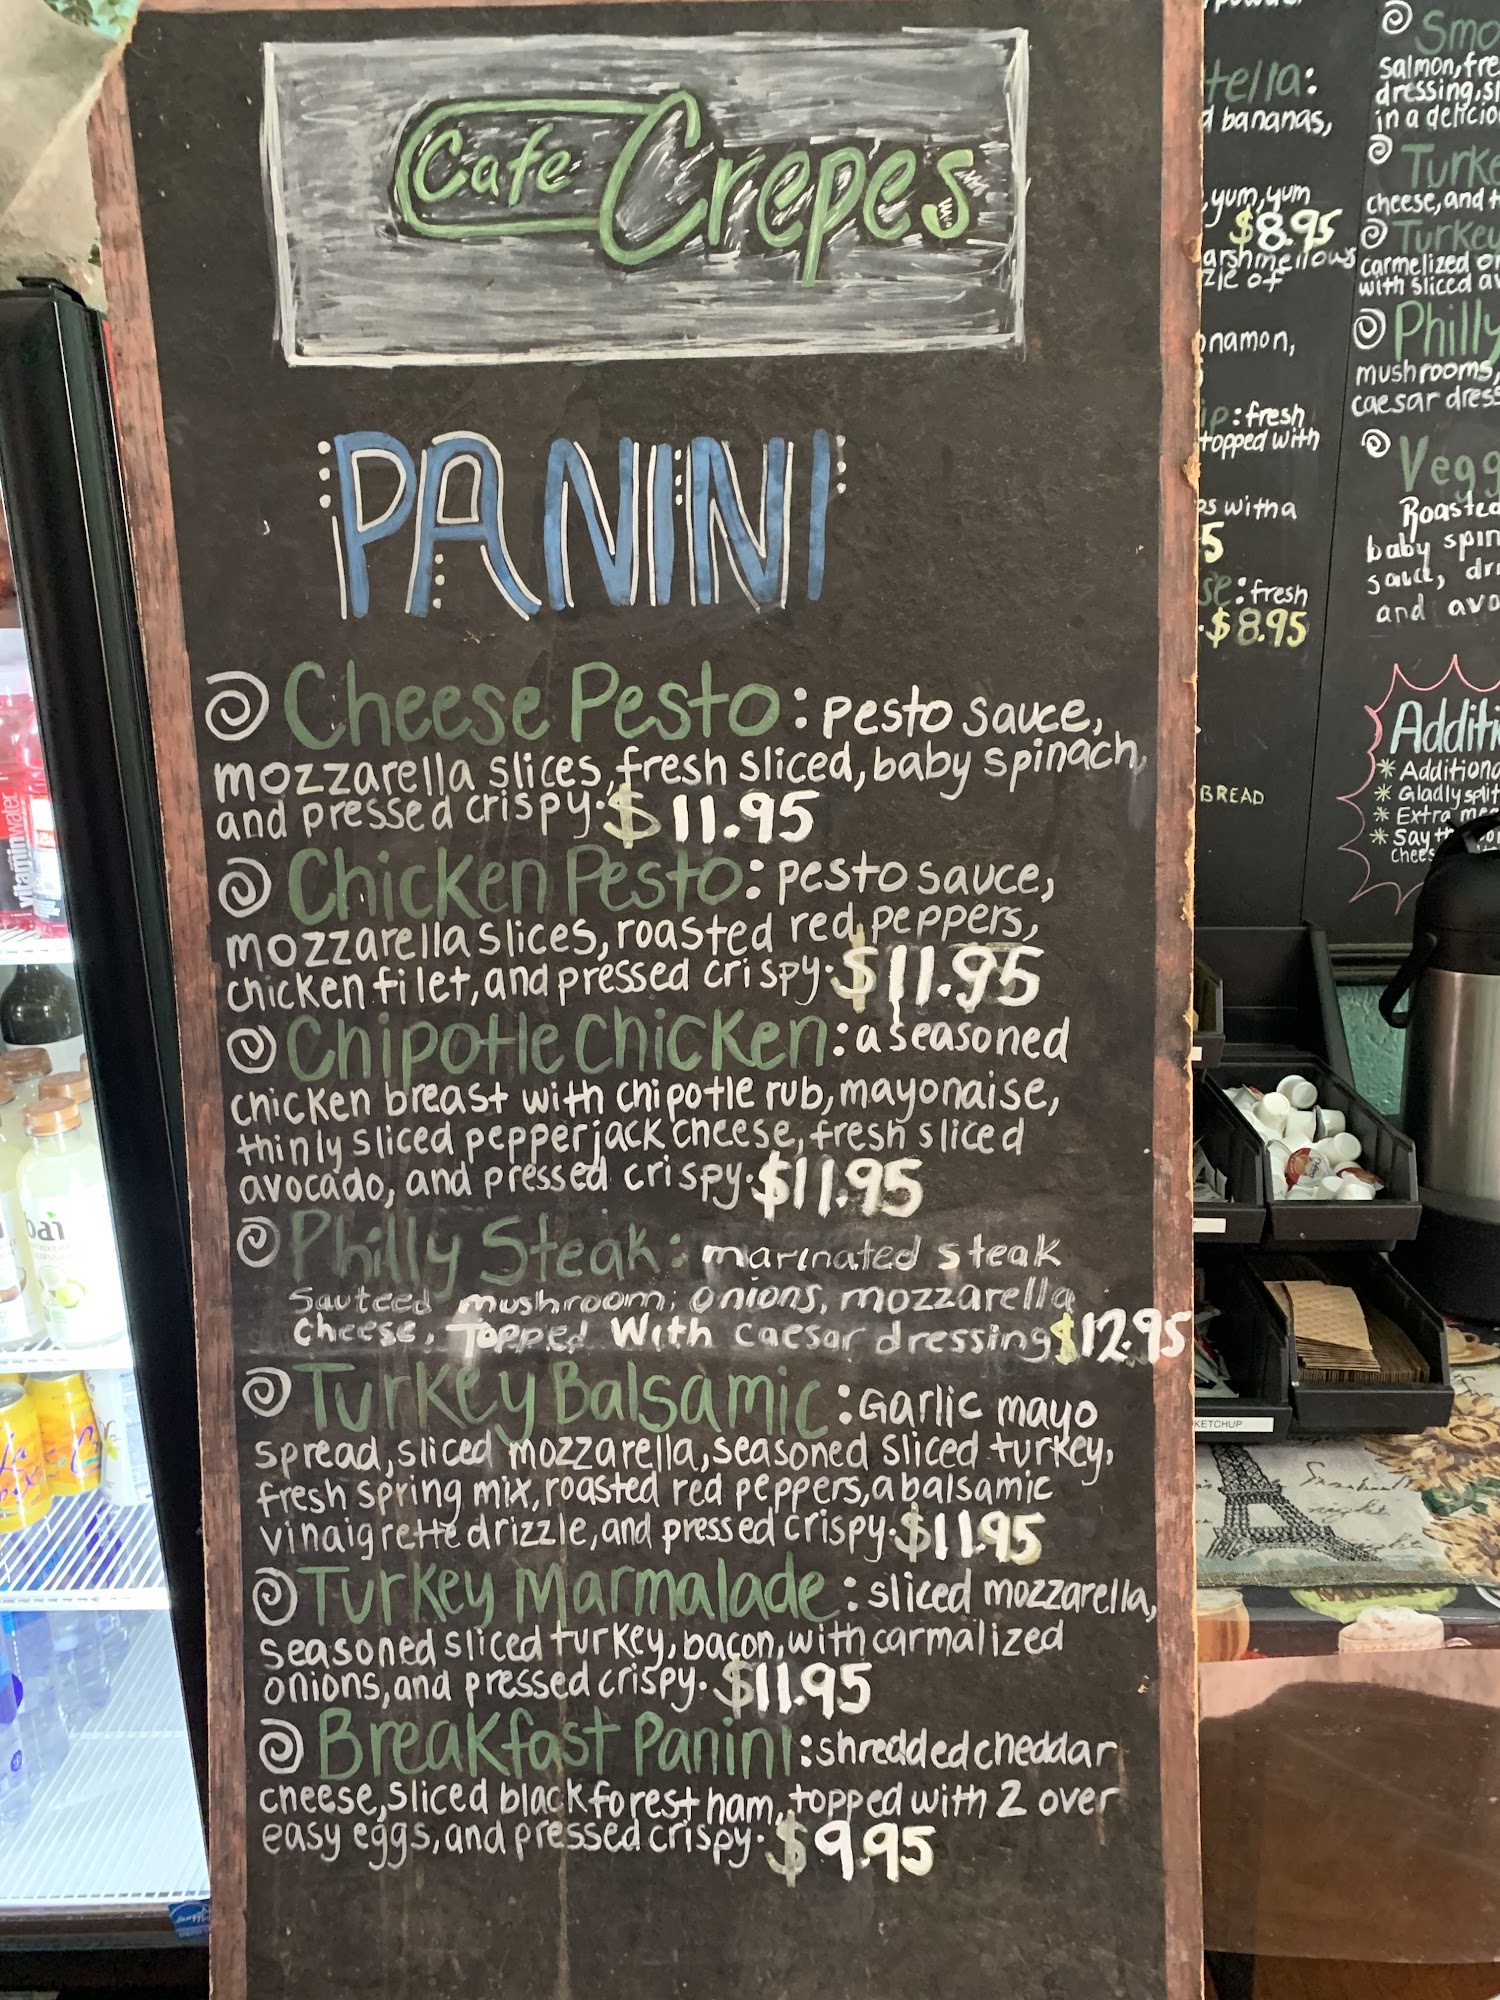 Cafe Crepes
PANINI
Cheese Pesto: pesto sauce,
mozzarella slices, fresh sliced, baby spinach,
and pressed crispy. $11.95
Chicken Pesto: pesto sauce,
mozzarella slices, roasted red peppers,
chicken filet, and pressed crispy. $11.95
Chipotle Chicken: a seasoned
chicken breast with chipotle rub, mayonaise,
thinly sliced pepperjack cheese, fresh sliced
avocado, and pressed crispy. $11.95
Philly Steak: marinated steak
Sauteed mushroom, onions, mozzarella
cheese, Topped With caesar dressing $12.95
Turkey Balsamic: Garlic mayo
spread, sliced mozzarella, seasoned sliced turkey,
fresh spring mix, roasted red peppers, a balsamic
vinaigrette drizzle, and pressed crispy. $11.95
Turkey Marmalade: sliced mozzarella,
seasoned sliced turkey, bacon, with carmalized
onions, and pressed crispy. $11.95
Breakfast Panini: shredded cheddar
cheese, sliced black forest ham, topped with 2 over
easy eggs, and pressed crispy. $9.95
tella:
bananas,
yum, yum
$8.95
arshmellows
zle of
namon,
ip: fresh
topped with
with a
5
se: fresh
$8.95
BREAD
Smo
salmon, fre
dressing, s
in a delicio
Turke
cheese, and
Turkey
carmelized
with sliced
Philly
mushrooms,
caesar dress
Vegg
Roasted
baby spin
sauce, dr
and avo
Additi
* Additiona
* Gladly split
* Extra me
* Say th
Chees
KETCHUP
vitaminwater
bai